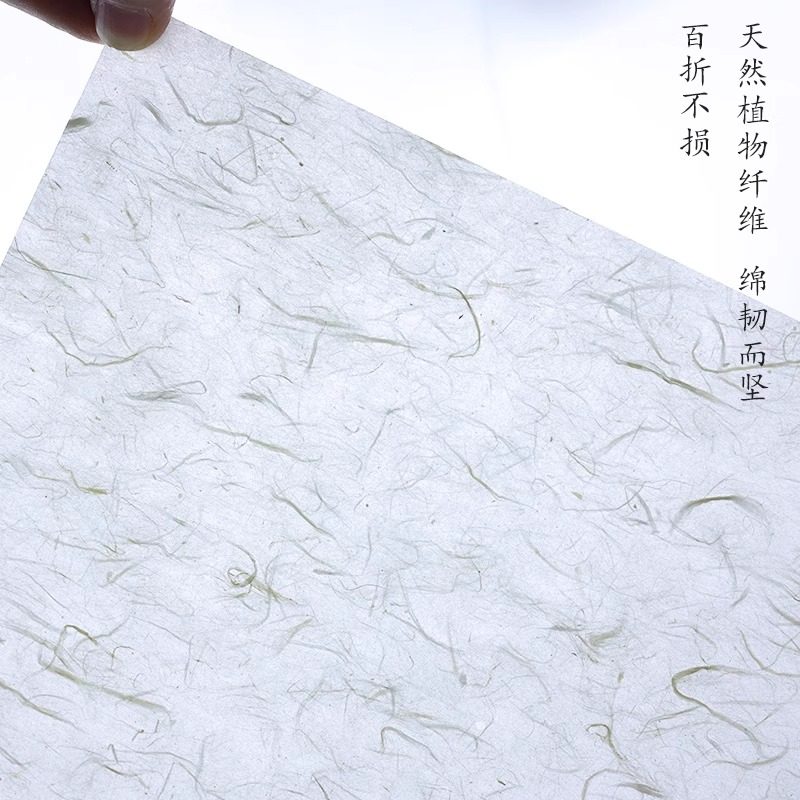 天然植物纤维 绵韧而坚
百折不损